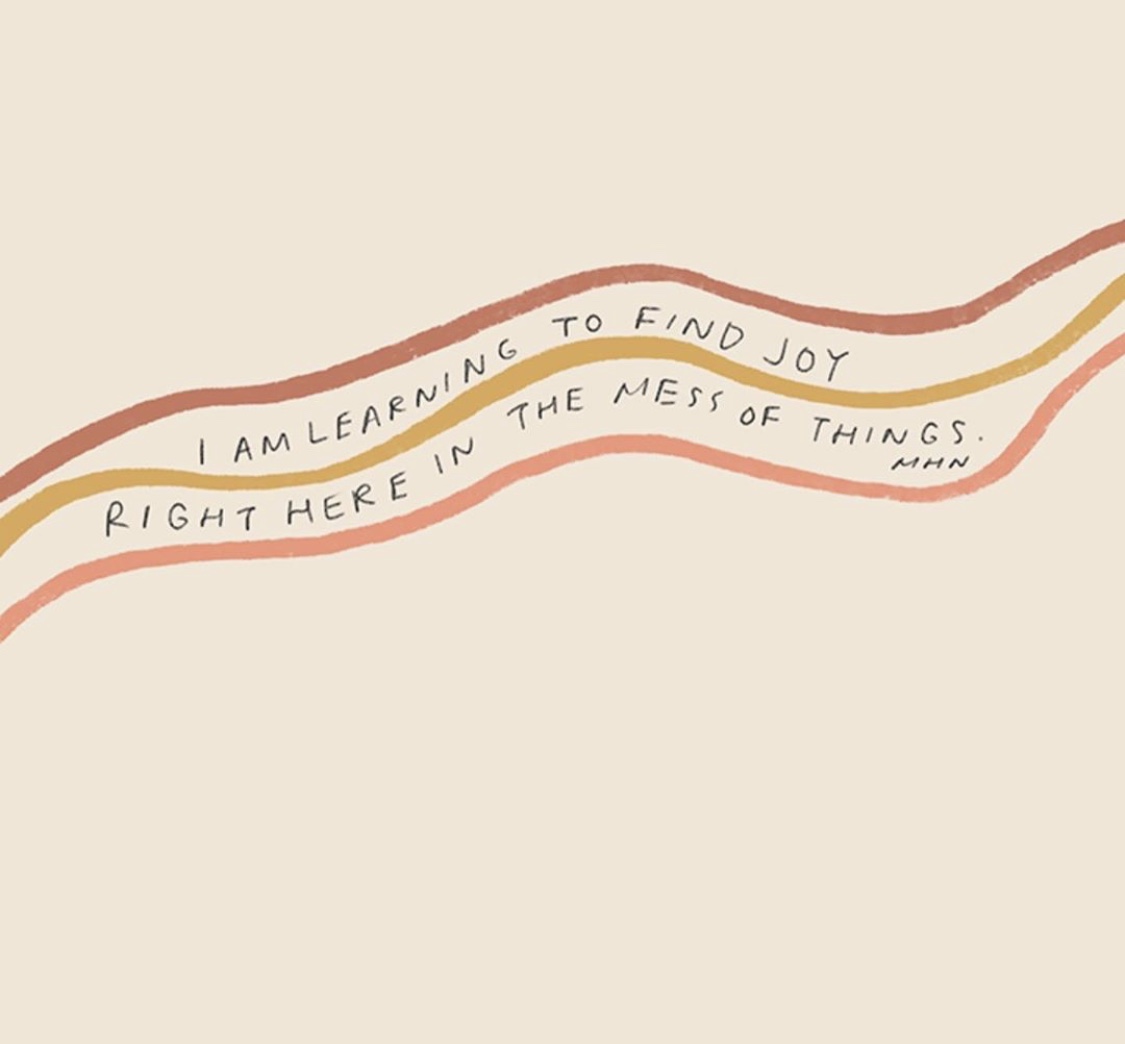 I AM LEARNING TO FIND JOY
RIGHT HERE IN THE MESS OF THINGS.
MHN